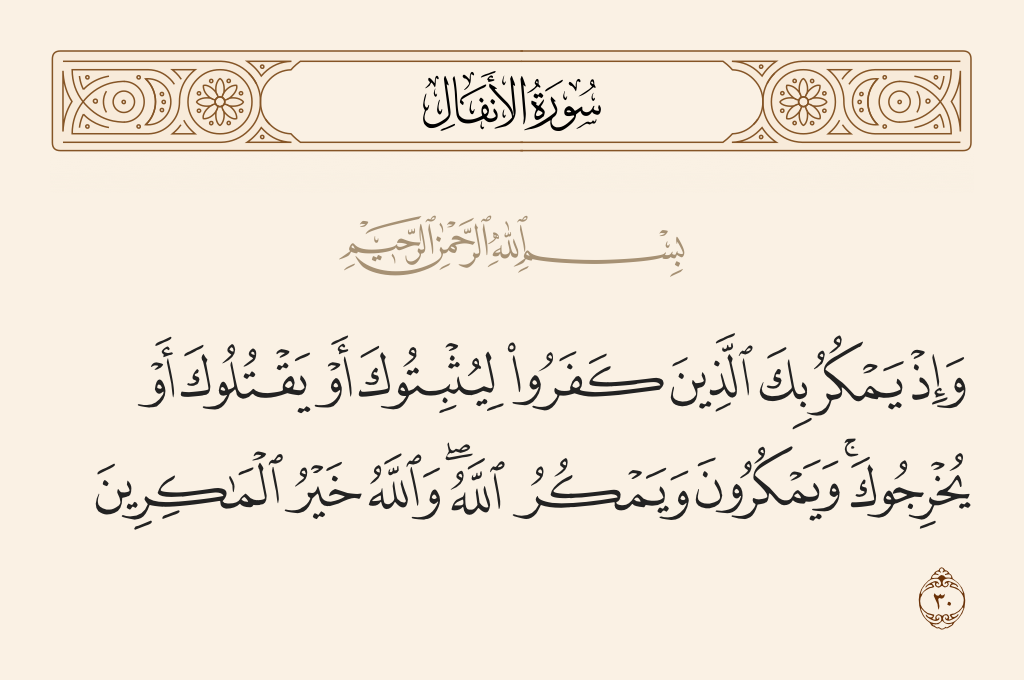 سُورَةُ الأَنفَالِ
بِسْمِ ٱللَّهِ ٱلرَّحْمَٰنِ ٱلرَّحِيمِ
وَإِذْ يَمْكُرُ بِكَ ٱلَّذِينَ كَفَرُوا۟ لِيُثْبِتُوكَ أَوْ يَقْتُلُوكَ أَوْ
يُخْرِجُوكَ ۚ وَيَمْكُرُونَ وَيَمْكُرُ ٱللَّهُ ۖ وَٱللَّهُ خَيْرُ ٱلْمَٰكِرِينَ
٣٠